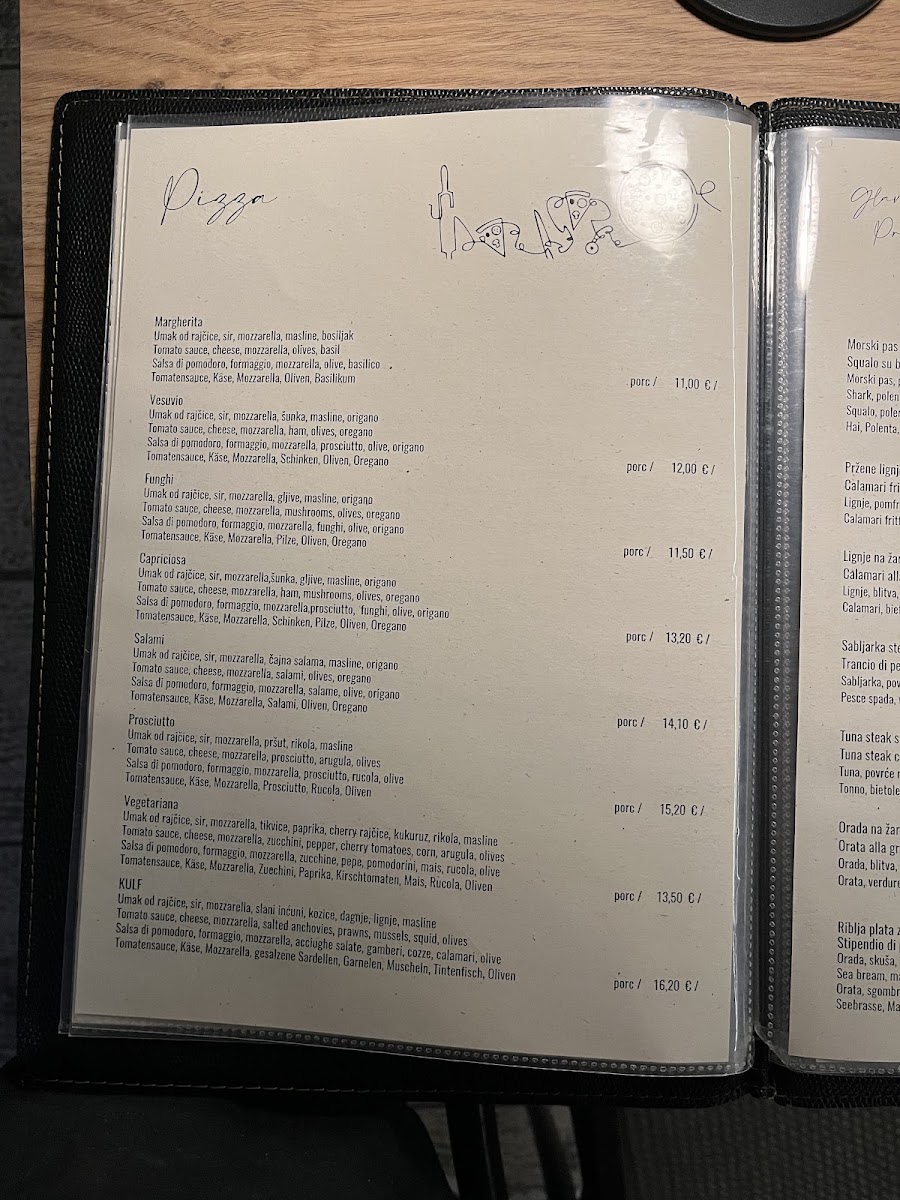 Pizza
Margherita
Umak od rajčice, sir, mozzarella, masline, bosiljak
Tomato sauce, cheese, mozzarella, olives, basil
Salsa di pomodoro, formaggio, mozzarella, olive, basilico
Tomatensauce, Käse, Mozzarella, Oliven, Basilikum
porc / 11,00 € /
Vesuvio
Umak od rajčice, sir, mozzarella, šunka, masline, origano
Tomato sauce, cheese, mozzarella, ham, olives, oregano
Salsa di pomodoro, formaggio, mozzarella, prosciutto, olive, origano
Tomatensauce, Käse, Mozzarella, Schinken, Oliven, Oregano
porc / 12,00 € /
Funghi
Umak od rajčice, sir, mozzarella, gljive, masline, origano
Tomato sauce, cheese, mozzarella, mushrooms, olives, oregano
Salsa di pomodoro, formaggio, mozzarella, funghi, olive, origano
Tomatensauce, Käse, Mozzarella, Pilze, Oliven, Oregano
porc / 11,50 € /
Capriciosa
Umak od rajčice, sir, mozzarella,šunka, gljive, masline, origano
Tomato sauce, cheese, mozzarella, ham, mushrooms, olives, oregano
Salsa di pomodoro, formaggio, mozzarella,prosciutto, funghi, olive, origano
Tomatensauce, Käse, Mozzarella, Schinken, Pilze, Oliven, Oregano
porc / 13,20 € /
Salami
Umak od rajčice, sir, mozzarella, čajna salama, masline, origano
Tomato sauce, cheese, mozzarella, salami, olives, oregano
Salsa di pomodoro, formaggio, mozzarella, salame, olive, origano
Tomatensauce, Käse, Mozzarella, Salami, Oliven, Oregano
porc / 14,10 € /
Prosciutto
Umak od rajčice, sir, mozzarella, pršut, rikola, masline
Tomato sauce, cheese, mozzarella, prosciutto, arugula, olives
Salsa di pomodoro, formaggio, mozzarella, prosciutto, rucola, olive
Tomatensauce, Käse, Mozzarella, Prosciutto, Rucola, Oliven
porc / 15,20 € /
Vegetariana
Umak od rajčice, sir, mozzarella, tikvice, paprika, cherry rajčice, kukuruz, rikola, masline
Tomato sauce, cheese, mozzarella, zucchini, pepper, cherry tomatoes, corn, arugula, olives
Salsa di pomodoro, formaggio, mozzarella, zucchine, pepe, pomodorini, mais, rucola, olive
Tomatensauce, Käse, Mozzarella, Zucchini, Paprika, Kirschtomaten, Mais, Rucola, Oliven
porc / 13,50 € /
KULF
Umak od rajčice, sir, mozzarella, slani inćuni, kozice, dagnje, lignje, masline
Tomato sauce, cheese, mozzarella, salted anchovies, prawns, mussels, squid, olives
Salsa di pomodoro, formaggio, mozzarella, acciughe salate, gamberi, cozze, calamari, olive
Tomatensauce, Käse, Mozzarella, gesalzene Sardellen, Garnelen, Muscheln, Tintenfisch, Oliven
porc / 16,20 € /
Morski pas
Squalo su
Morski pas,
Shark,
Squalo,
Hai, Polenta,
Pržene
Calamari
Lignje,
Calamari
Lignje na
Calamari
Lignje, blitva,
Calamari,
Sabljarka
Trancio di
Sabljarka,
Pesce spada,
Tuna steak
Tuna steak
Tuna, povrće
Tonno,
Orada na
Orata alla
Orada, blitva,
Orata,
Riblja plata
Stipendio di
Orada, skuša,
Sea bream,
Orata,
Seebrasse,